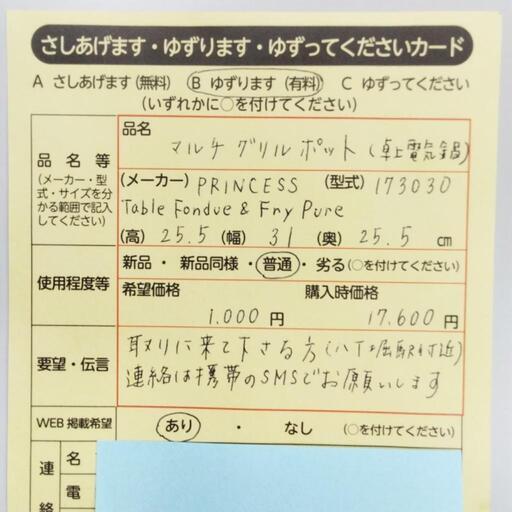 さしあげます・ゆずります・ゆずってくださいカード
A さしあげます（無料） B ゆずります（有料） C ゆずってください
（いずれかに○を付けてください）
品名等
（メーカー・型式・サイズを分かる範囲で記入してください）
品名
マルチグリルポット（卓上電気鍋）
（メーカー）PRINCESS （型式）173030
Table Fondue & Fry Pure
（高）25.5（幅）31（奥）25.5 cm
使用程度等
新品・新品同様・普通・劣る（○を付けてください）
希望価格 購入時価格
1.000円 17.600円
要望・伝言
取りに来て下さる方（八丁堀駅付近）
連絡は携帯のSMSでお願いします
WEB掲載希望 あり ・ なし （○を付けてください）
連絡
名
電